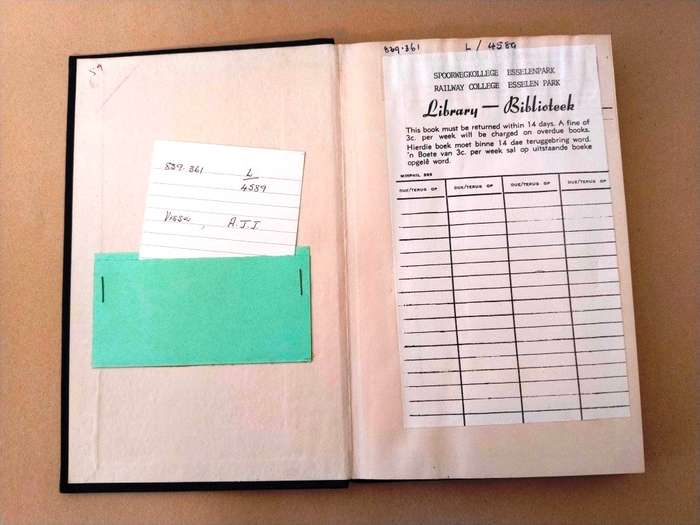 839.361 L
4589
Visser, A.J.J.
839.361 L/4589
SPOORWEGKOLLEGE ESSELENPARK
RAILWAY COLLEGE ESSELEN PARK
Library — Biblioteek
This book must be returned within 14 days. A fine of
3c. per week will be charged on overdue books.
Hierdie boek moet binne 14 dae teruggebring word.
'n Boete van 3c. per week sal op uitstaande boeke
opgelê word.
DUE/TERUG OP DUE/TERUG OP DUE/TERUG OP DUE/TERUG OP